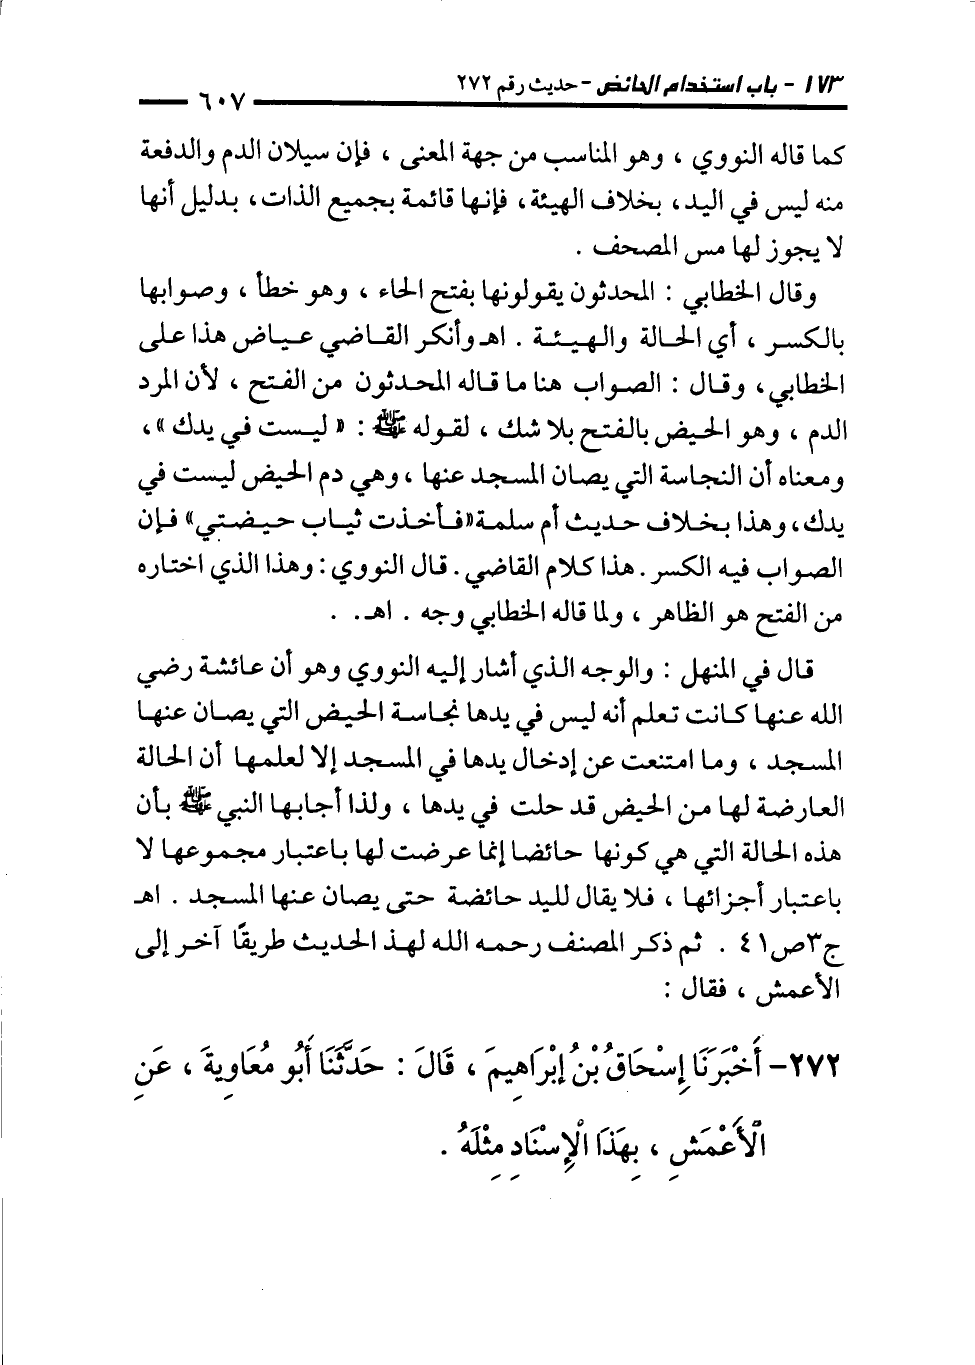 ١٧٣ - باب استخدام الحائض - حديث رقم ٢٧٢
٦٠٧
كما قاله النووي ، وهو المناسب من جهة المعنى ، فإن سيلان الدم والدفعة
منه ليس في اليد ، بخلاف الهيئة ، فإنها قائمة بجميع الذات ، بدليل أنها
لا يجوز لها مس المصحف .
وقال الخطابي : المحدثون يقولونها بفتح الحاء ، وهو خطأ ، وصوابها
بالكسر ، أي الحالة والهيئة . اهـ وأنكر القاضي عياض هذا على
الخطابي ، وقال : الصواب هنا ما قاله المحدثون من الفتح ، لأن المرد
الدم ، وهو الحيض بالفتح بلا شك ، لقوله ﷺ : « ليست في يدك » ،
ومعناه أن النجاسة التي يصان المسجد عنها ، وهي دم الحيض ليست في
يدك ، وهذا بخلاف حديث أم سلمة «فأخذت ثياب حيضتي» فإن
الصواب فيه الكسر . هذا كلام القاضي . قال النووي : وهذا الذي اختاره
من الفتح هو الظاهر ، ولما قاله الخطابي وجه . اهـ . .
قال في المنهل : والوجه الذي أشار إليه النووي وهو أن عائشة رضي
الله عنها كانت تعلم أنه ليس في يدها نجاسة الحيض التي يصان عنها
المسجد ، وما امتنعت عن إدخال يدها في المسجد إلا لعلمها أن الحالة
العارضة لها من الحيض قد حلت في يدها ، ولذا أجابها النبي ﷺ بأن
هذه الحالة التي هي كونها حائضا إنما عرضت لها باعتبار مجموعها لا
باعتبار أجزائها ، فلا يقال لليد حائضة حتى يصان عنها المسجد . اهـ
ج٣ص٤١ . ثم ذكر المصنف رحمه الله لهذ الحديث طريقًا آخر إلى
الأعمش ، فقال :
٢٧٢- أَخْبَرَنَا إِسْحَاقُ بْنُ إِبْرَاهِيمَ ، قَالَ : حَدَّثَنَا أَبُو مُعَاوِيةَ ، عَنِ
الْأَعْمَشِ ، بِهَذَا الْإِسْنَادِ مِثْلَهُ .